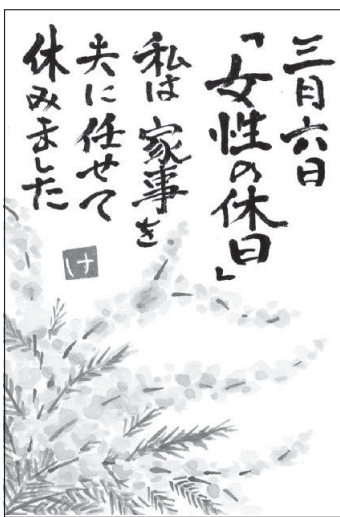 三月六日
「女性の休日」
私は家事を
夫に任せて
休みました
け